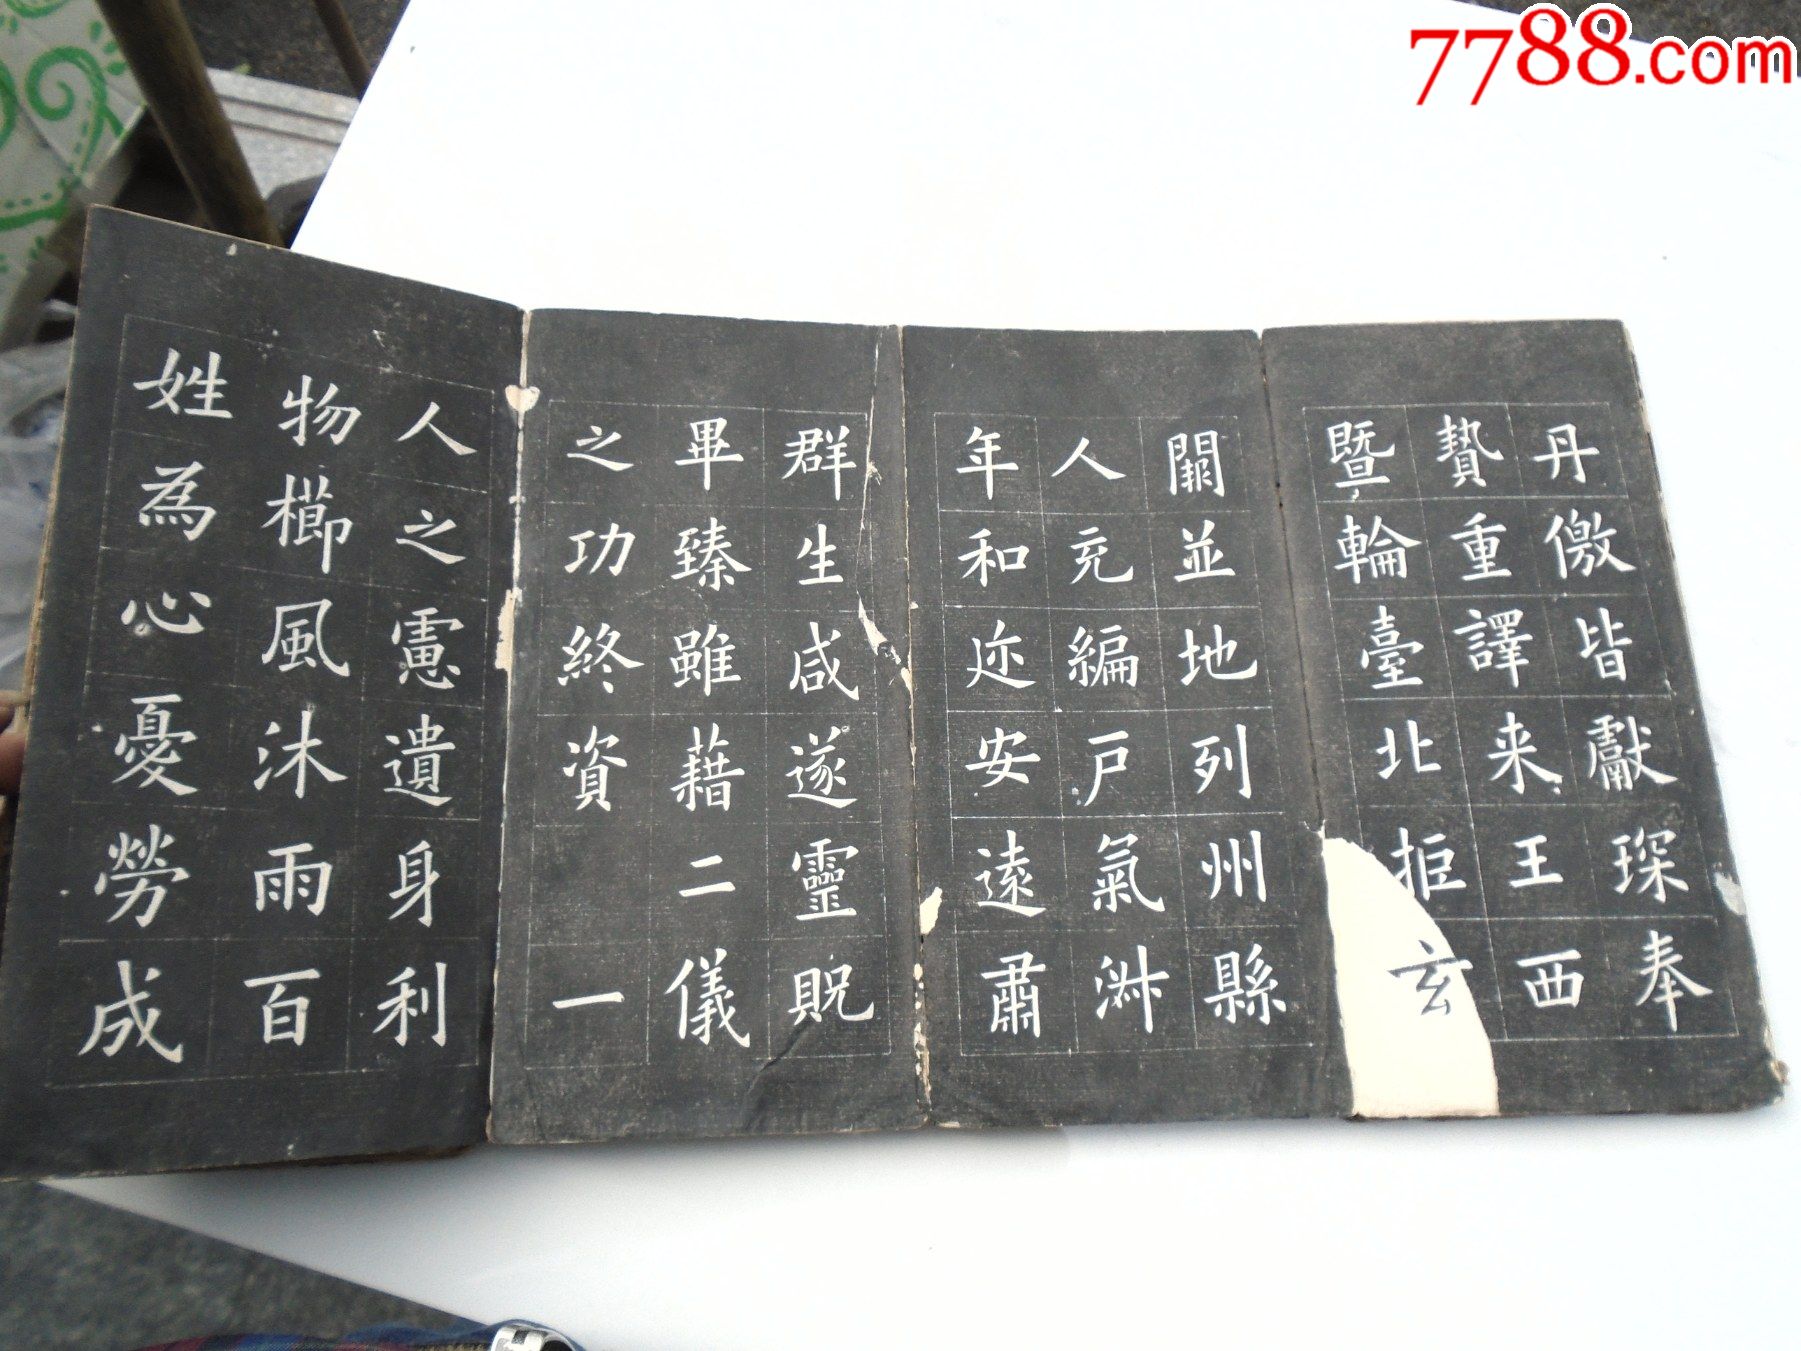 7788.com
丹儌皆獻琛奉
贄重譯来王西
暨輪臺北拒玄
闕並地列州縣
人充編戶氣淋
年和迩安遠肅
群生咸遂靈貺
畢臻雖藉二儀
之功終資一
人之慮遺身利
物櫛風沐雨百
姓為心憂勞成